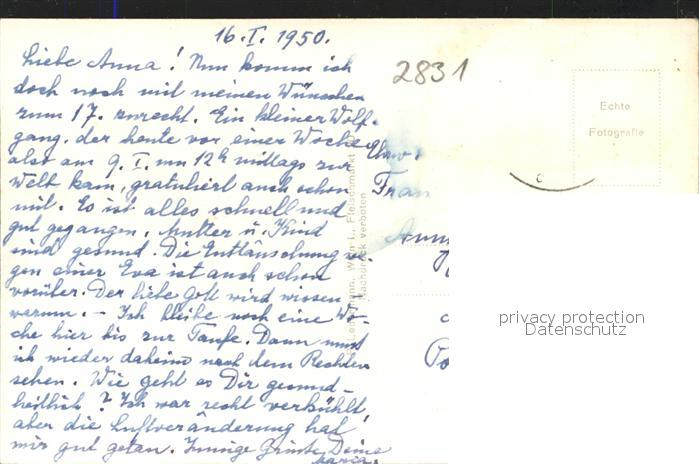 16. I. 1950.
Liebe Anna! Nun komm ich
doch noch mit meinen Wünschen
zum 17. zurecht. Ein kleiner Wolf-
gang, der heute vor einer Woche
also am 9. I. um 12h mittags zur
Welt kam, gratuliert auch schon
mit. Es ist alles schnell und
gut gegangen. Mutter u. Kind
sind gesund. Die Enttäuschung we-
gen einer Eva ist auch schon
vorüber. Der liebe Gott wird wissen
warum. - Ich bleibe noch eine Wo-
che hier bis zur Taufe. Dann muss
ich wieder daheim nach dem Rechten
sehen. Wie geht es Dir gesund-
heitlich? Ich war recht verkühlt,
aber die Luftveränderung hat
mir gut getan. Innige Grüsse Deine
Maria.
2831
Echte
Fotografie
Frau
Wien I., Fleischmarkt
Nachdruck verboten
privacy protection
Datenschutz